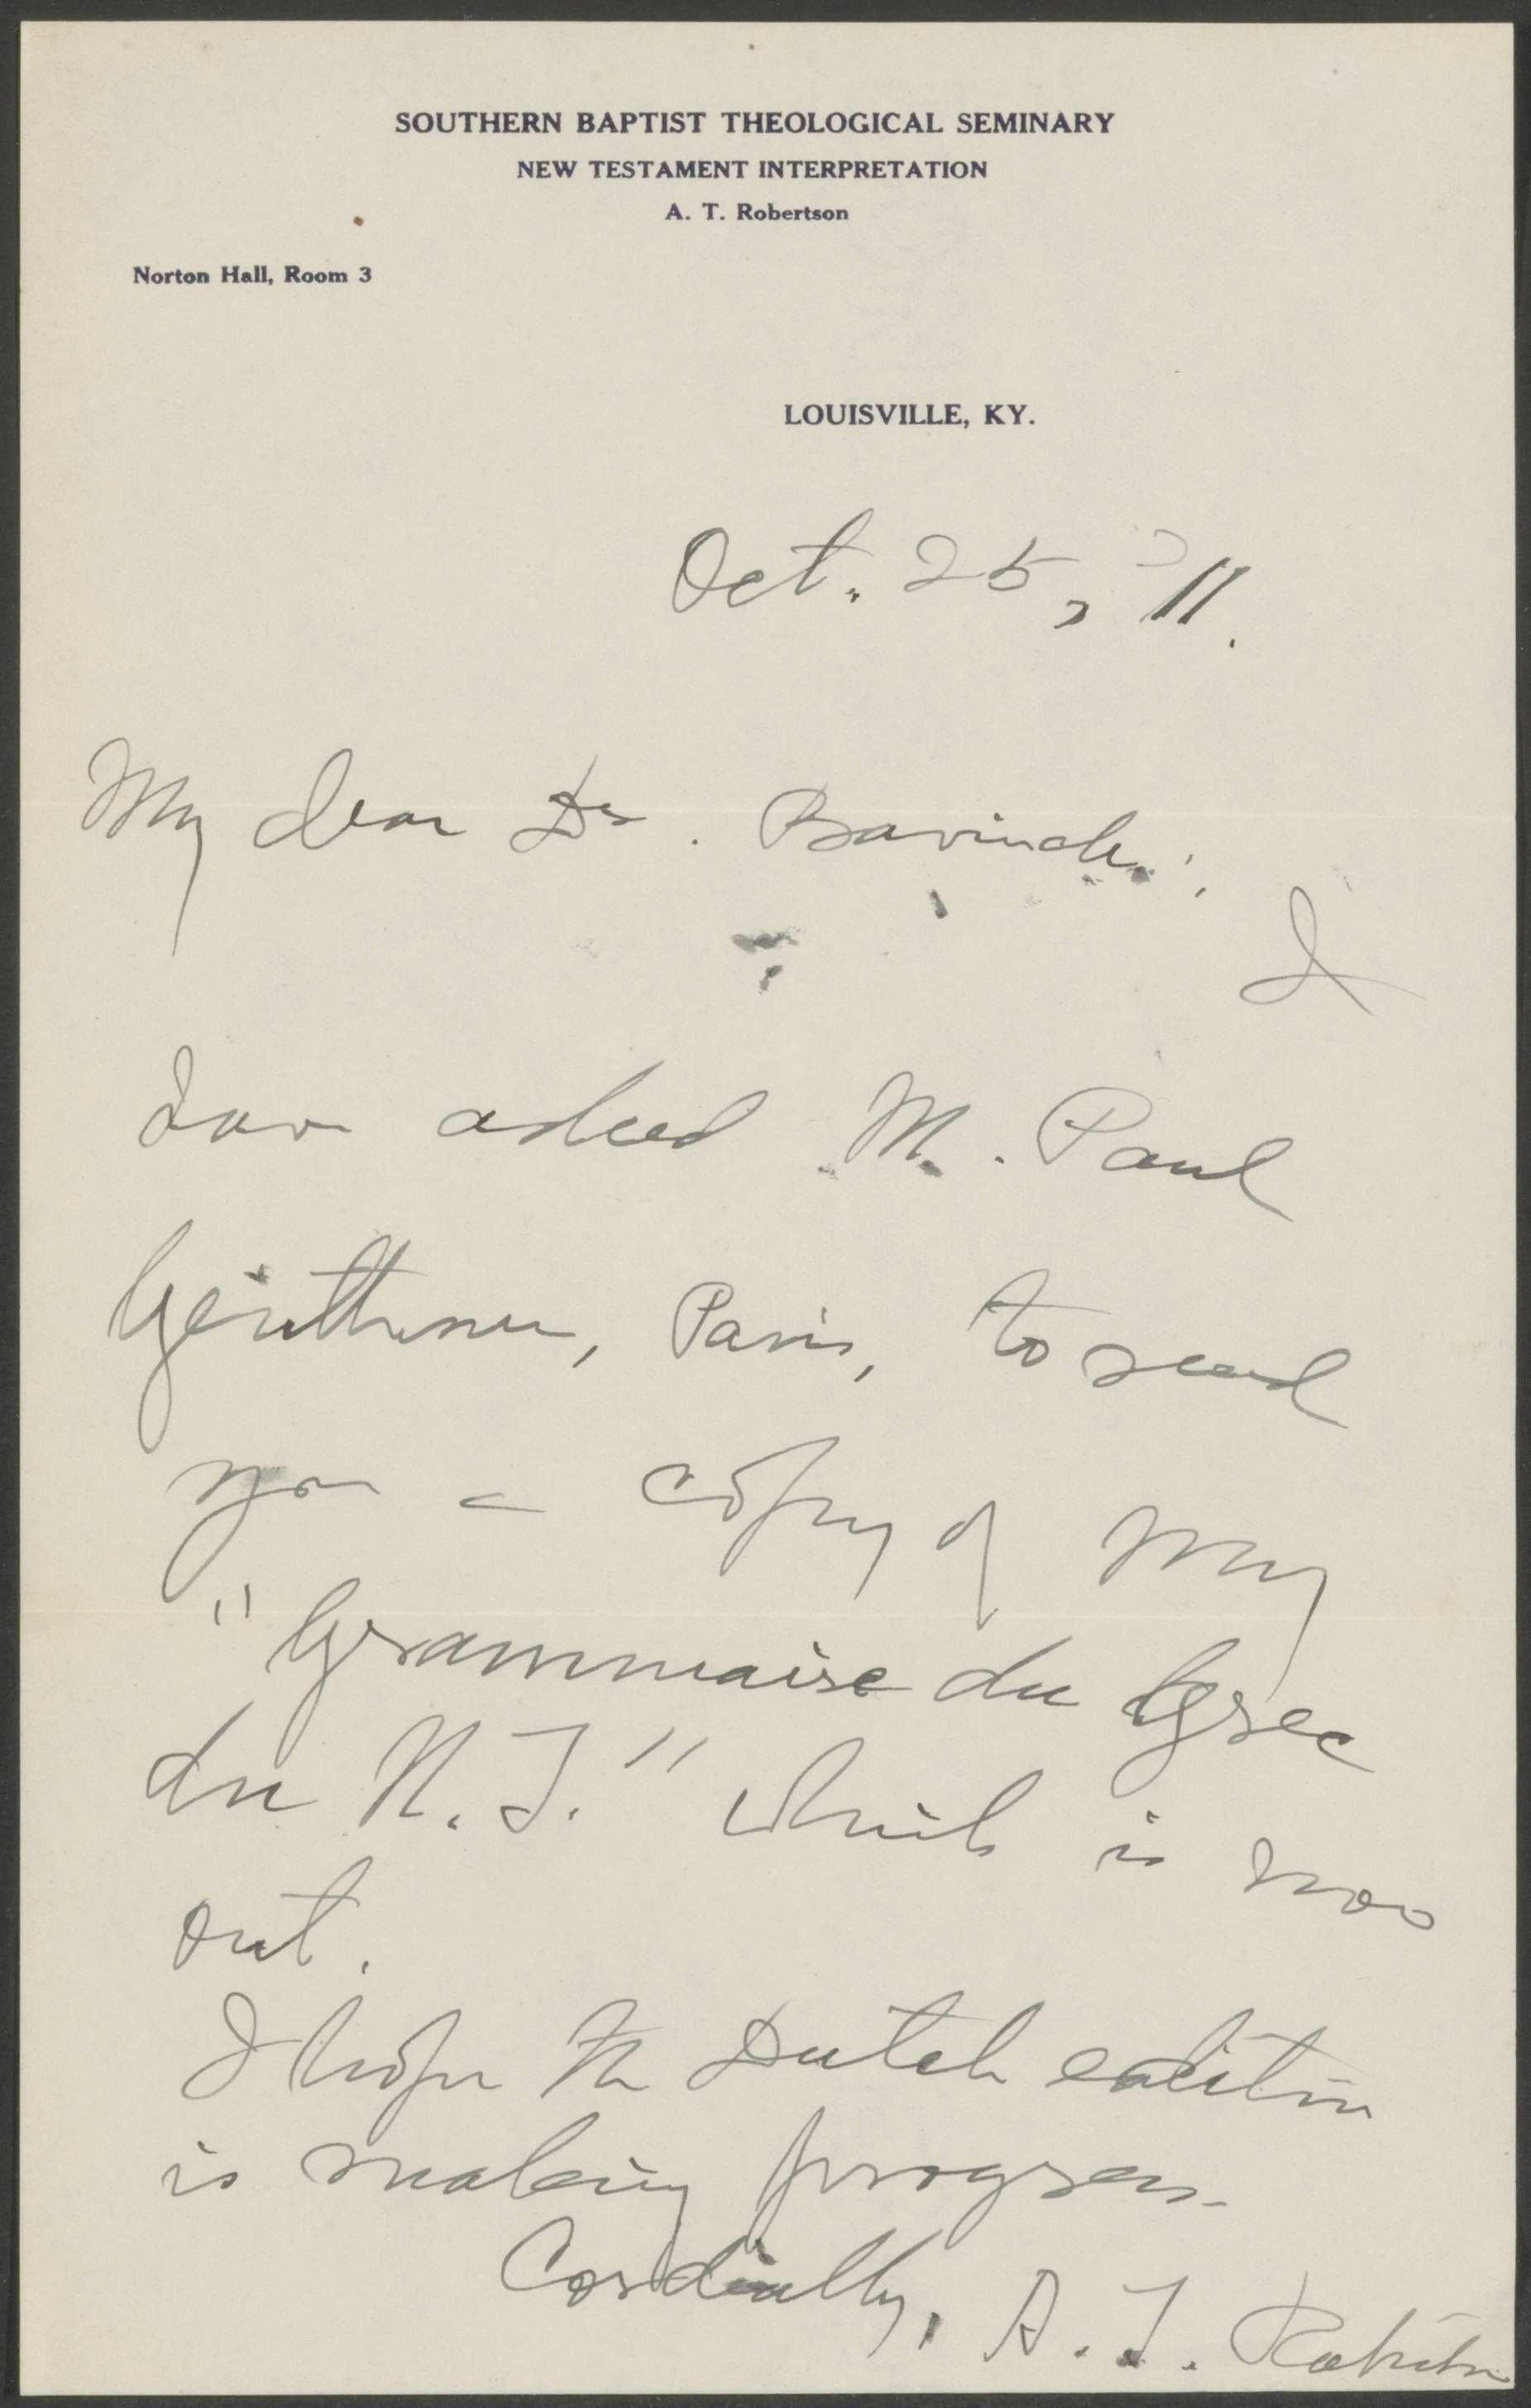 SOUTHERN BAPTIST THEOLOGICAL SEMINARY
NEW TESTAMENT INTERPRETATION
A. T. Robertson
Norton Hall, Room 3
LOUISVILLE, KY.
Oct. 25, '11.
My dear Dr. Bavinck:
I
have asked M. Paul
Geuthner, Paris, to send
you a copy of my
"Grammaire du Grec
du N. T." which is now
out.
I hope the Dutch edition
is making progress.
Cordially, A. T. Robertson